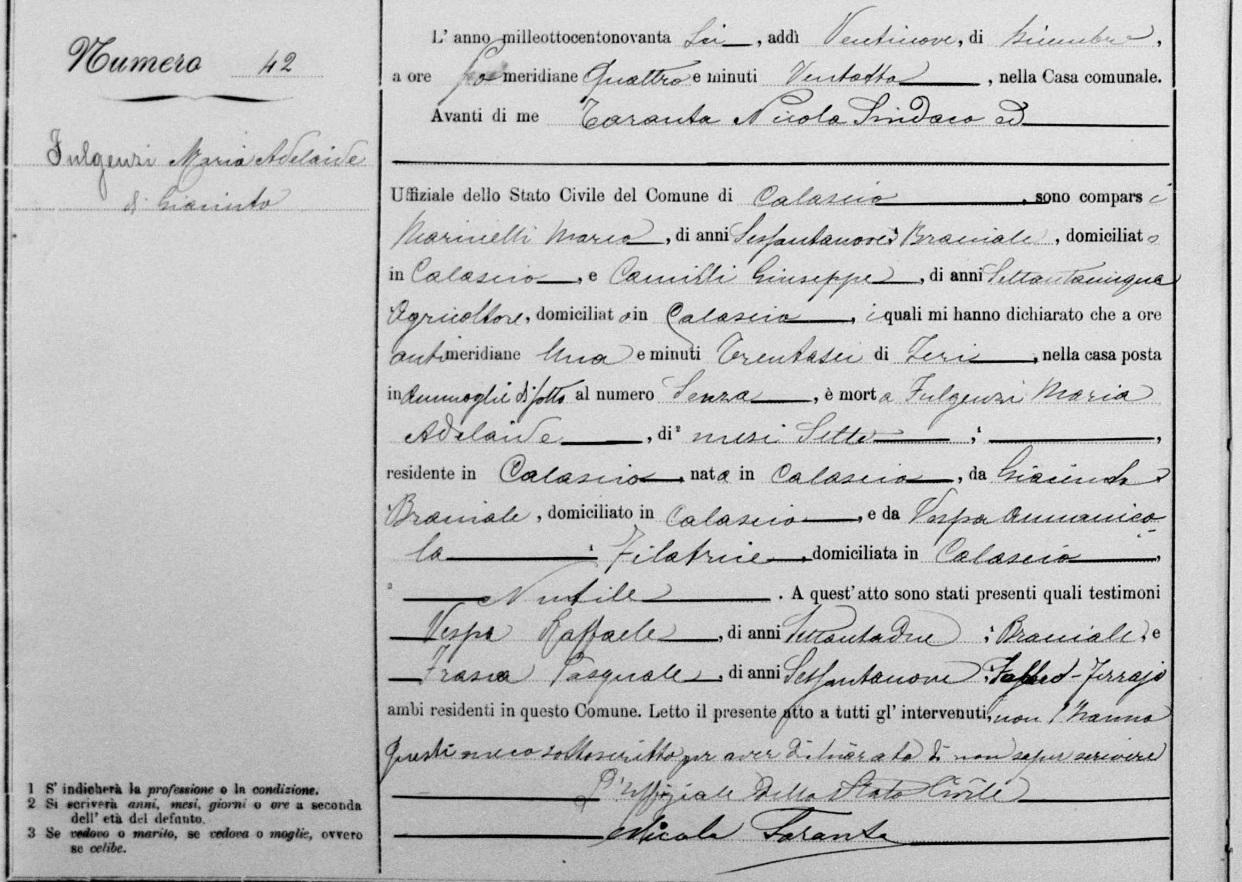 Numero 42
Fulgenzi Maria Adelaide
di Giacinto
L' anno milleottocentonovanta sei, addì Ventinove, di Dicembre,
a ore po meridiane Quattro e minuti Ventotto, nella Casa comunale.
Avanti di me Taranta Nicola Sindaco ed
Uffiziale dello Stato Civile del Comune di Calascio, sono compars i
Marinelli Marco, di anni Sessantanove, Braciale, domiciliato
in Calascio, e Camilli Giuseppe, di anni Settantacinque
Agricoltore, domiciliato in Calascio, i quali mi hanno dichiarato che a ore
antimeridiane Una e minuti Trentasei di Jeri, nella casa posta
in di sotto al numero Senza, è morta Fulgenzi Maria
Adelaide, di 2 mesi Sette
residente in Calascio, nata in Calascio, da Giacinto
Braciale, domiciliato in Calascio, e da Vespa Annanico
la 1 Filatrice, domiciliata in Calascio,
3 Nubile. A quest'atto sono stati presenti quali testimoni
Vespa Raffaele, di anni Settantadue, Braciale, e
Frasca Pasquale, di anni Sessantanove, Fabbro-Ferrajo
ambi residenti in questo Comune. Letto il presente atto a tutti gl' intervenuti, non l'hanno
questi meco sottoscritto per aver dichiarato di non saper scrivere
L'Uffiziale dello Stato Civile
Nicola Taranta
1 S' indicherà la professione o la condizione.
2 Si scriverà anni, mesi, giorni o ore a seconda
dell' età del defunto.
3 Se vedovo o marito, se vedova o moglie, ovvero
se celibe.